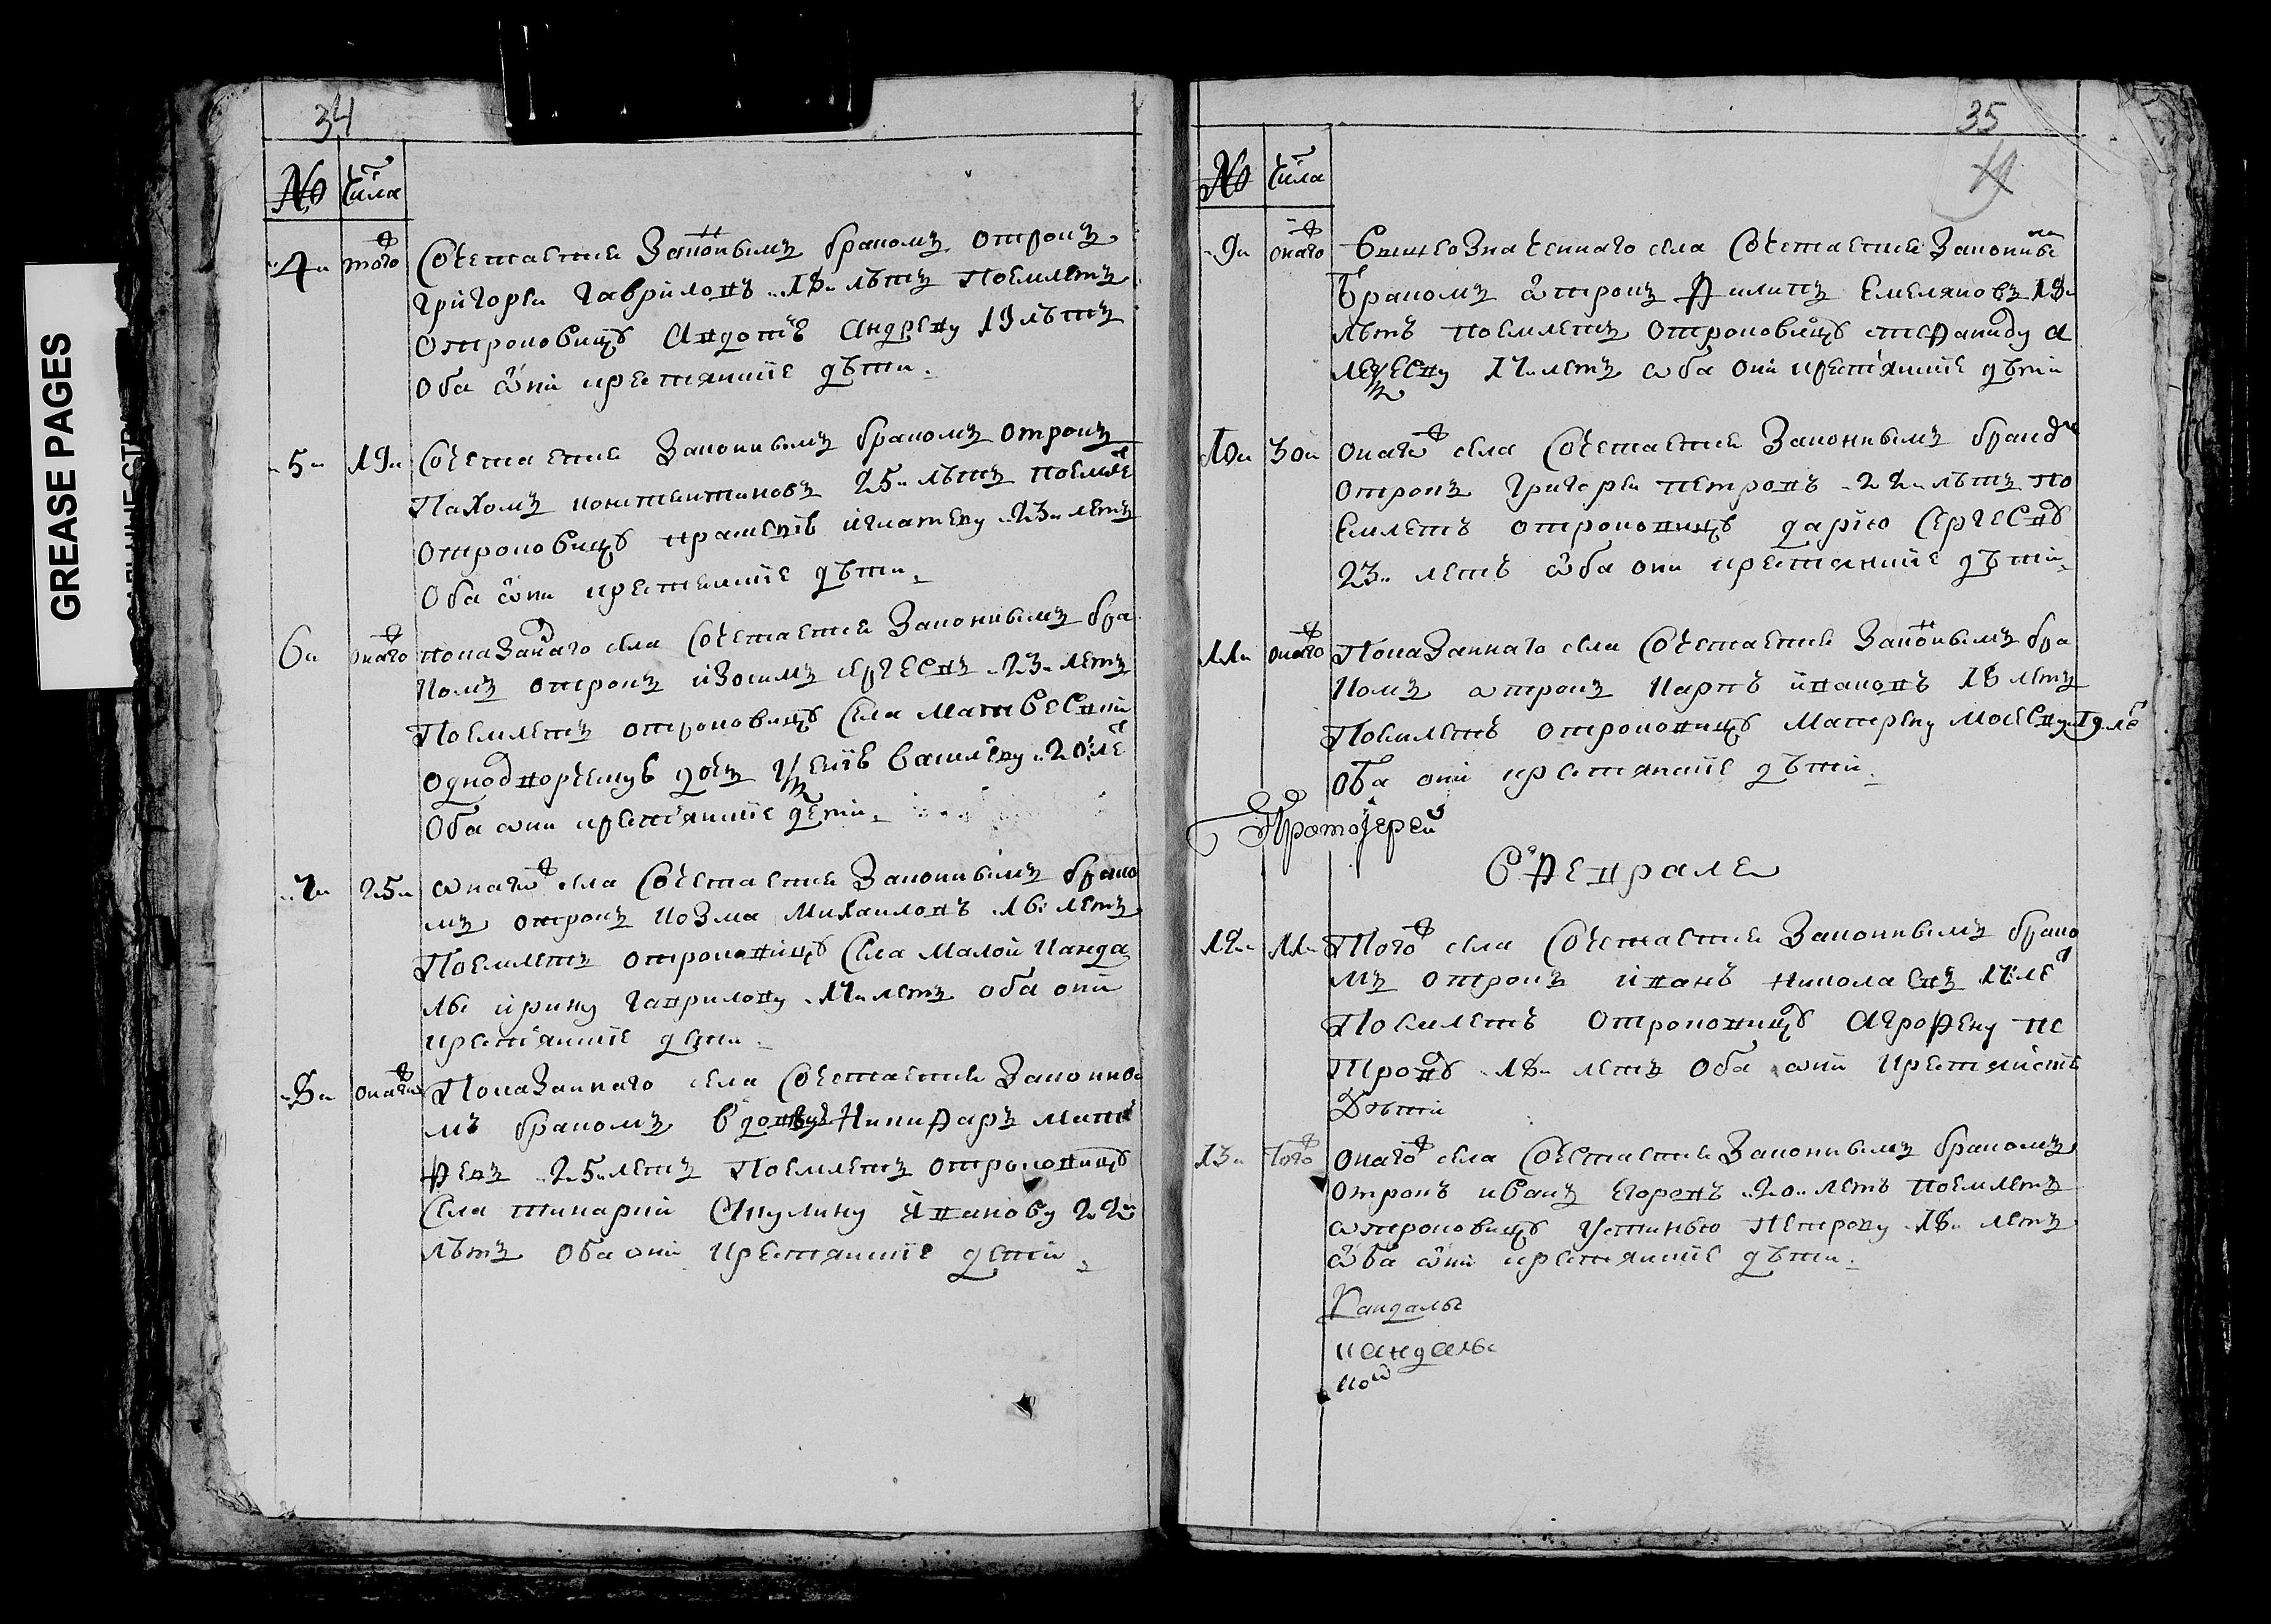 GREASE PAGES
34
№ Числа
4 того Сочетается Законнымъ бракомъ отрокъ
григореи гавриловъ 18 лѣтъ Поемлетъ
отроковицу Авдотю Андреву 19 лѣтъ
Оба они крестянские дѣти
5 19 Сочетается Законнымъ бракомъ отрокъ
Пахомъ константиновъ 25 лѣтъ поемле
отроковицу игнатеву 23 летъ
Оба они крестянские дѣти
6 онаго показаннаго села Сочетается Законнымъ бра
комъ отрокъ изосимъ сергеевъ 23 летъ
Поемлетъ отроковицу села Матвеевки
однодворческу дочь василеву 20 ле
Оба они крестьянские дети
7 25 онаго села Сочетается Законнымъ брако
мъ отрокъ козма Михаиловъ 16 летъ
Поемлетъ отроковицу села малой канда
лы ирину гаврилову 17 летъ оба они
крестьянские дети
8 онаго Показаннаго села Сочетается Законны
мъ бракомъ Никифаръ мати
февъ 25 летъ Поемлетъ отроковицу
села Акулину иванову 22
лѣтъ Оба они крестянские дети
35
№ Числа
9 онаго вышеозначеннаго села Сочетается Законны
бракомъ отрокъ Филипъ Емеляновъ 19
лѣтъ поемлетъ отроковицу стефаниду а
лексеву 17 летъ оба они крестьянские дѣти
10 30 онаго села Сочетается Законнымъ браком
отрокъ григореи петровъ 22 лѣтъ по
емлетъ отроковицу дарю Сергеву
23 летъ оба они крестянские дѣти
11 онаго Показаннаго села Сочетается Законнымъ бра
комъ отрокъ карпъ ивановъ 18 летъ
Поемлетъ отроковицу Матрену Мосеву 19 ле
Оба они крестянские дѣти
Протоіерей
В Феврале
12 11 Того села Сочетается Законнымъ брако
мъ отрокъ иванъ николаевъ 17 ле
Поемлетъ отроковицу Аграфену пе
трову 18 летъ Оба они крестянские
Дѣти
13 Того онаго села Сочетается Законнымъ бракомъ
отрокъ иванъ Егоровъ 20 летъ поемлетъ
отроковицу устинью Петрову 18 летъ
оба они крестянские дѣти
Кандалы
кандалы